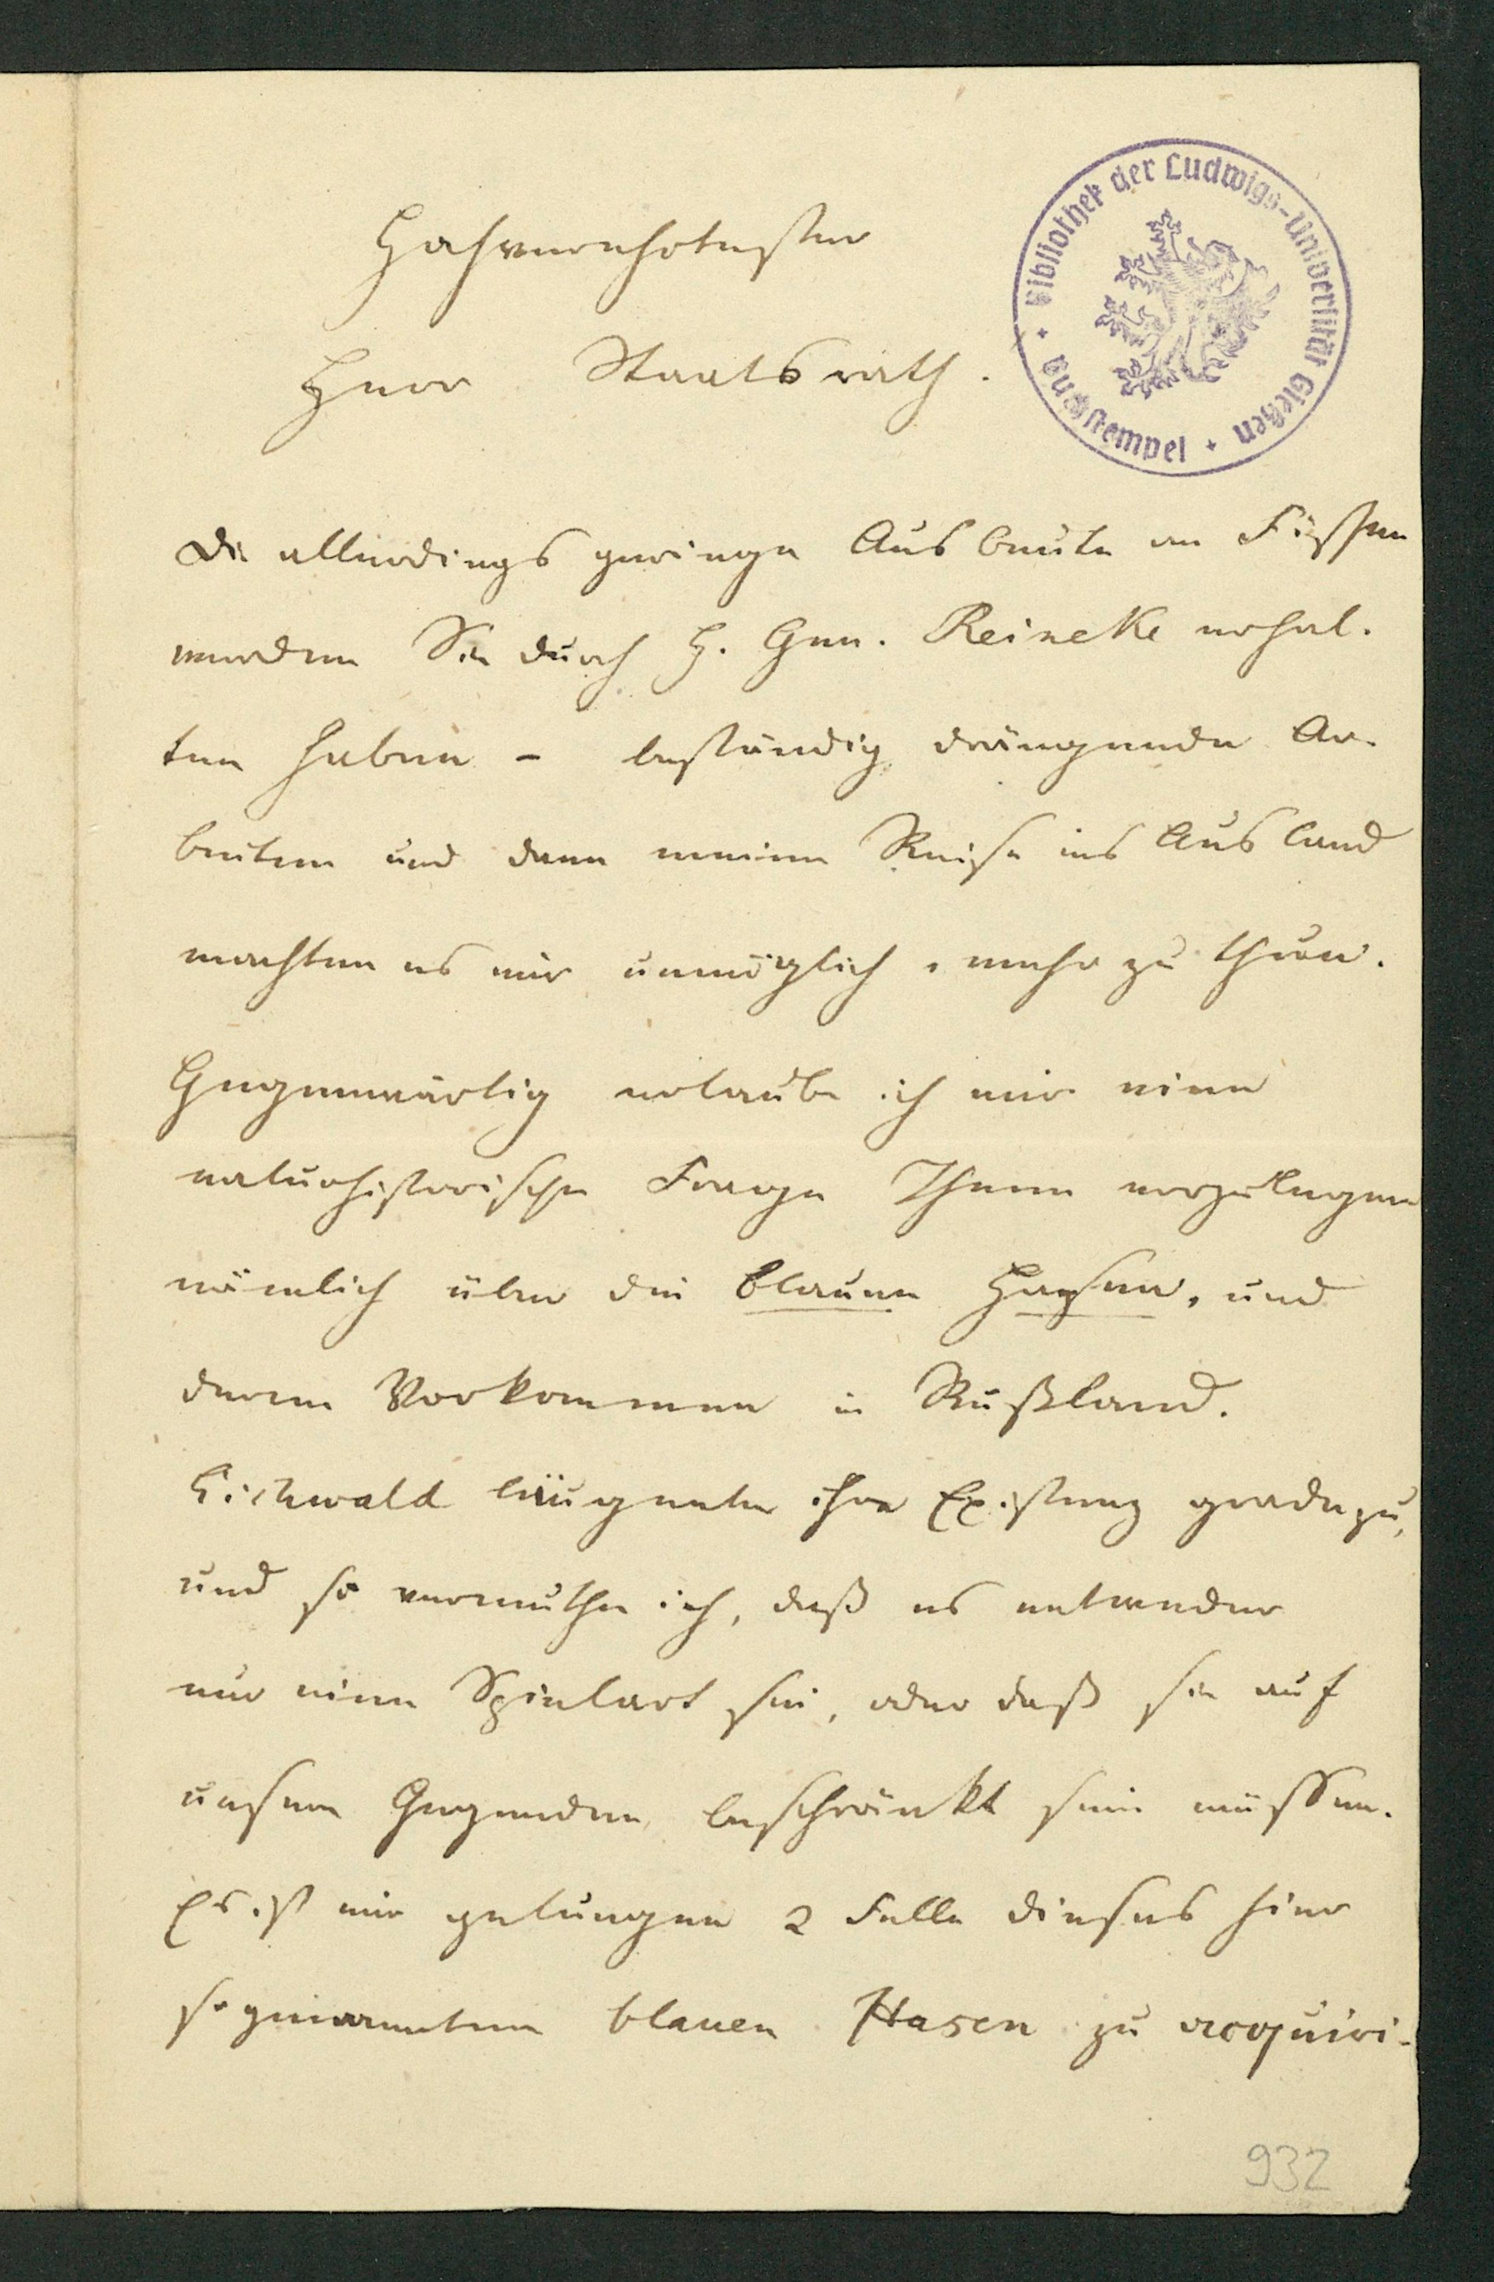 Hochverehrtester
Herr Staatsrath.
Bibliothek der Ludwigs-Universität Gießen
Buchstempel
Die allerdings geringe Ausbeute an Fischen
werden Sie durch H. Gen. Reineke erhal-
ten haben - beständig drängende Ar-
beiten und dann meine Reise ins Ausland
machten es mir unmöglich, mehr zu thun.
Gegenwärtig erlaube ich mir eine
naturhistorische Frage Ihnen vorzulegen
nämlich über die blauen Hasen, und
deren Vorkommen in Rußland.
Eichwald läugnete ihre Existenz gradezu,
und so vermuthe ich, daß es entweder
nur eine Spielart sei, oder daß sie auf
unsere Gegenden beschränkt sein müssen.
Es ist mir gelungen 2 Felle dieses hier
sogenannten blauen Hasen zu acquiri-
932